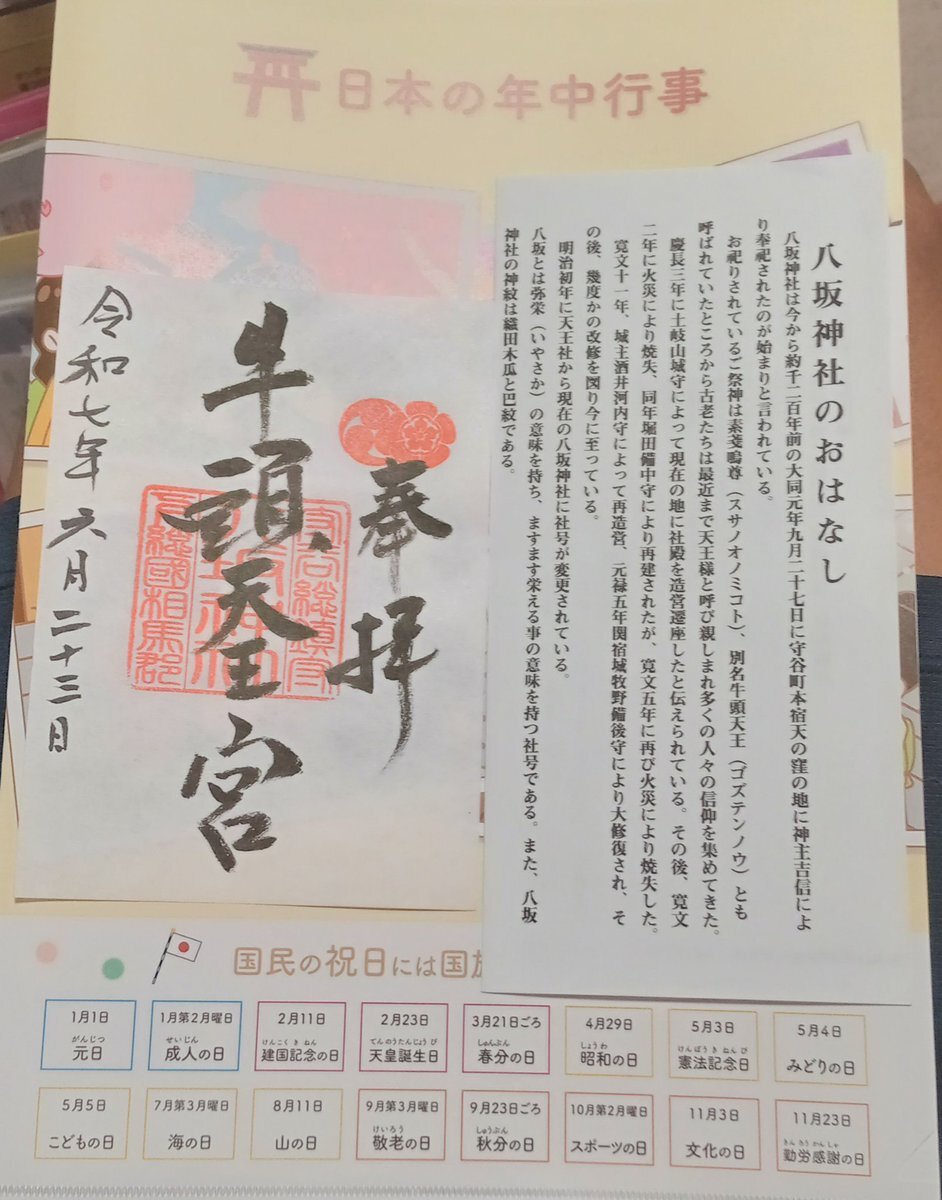 日本の年中行事
八坂神社のおはなし
八坂神社は今から約千二百年前の大同元年九月二十七日に守谷町本宿天の窪の地に神主吉信によ
り奉祀されたのが始まりと言われている。
お祀りされているご祭神は素戔嗚尊（スサノオノミコト）、別名牛頭天王（ゴズテンノウ）とも
呼ばれていたところから古老たちは最近まで天王様と呼び親しまれ多くの人々の信仰を集めてきた。
慶長三年に土岐山城守によって現在の地に社殿を造営遷座したと伝えられている。その後、寛文
二年に火災により焼失、同年堀田備中守により再建されたが、寛文五年に再び火災により焼失した。
寛文十一年、城主酒井河内守によって再造営、元禄五年関宿城牧野備後守により大修復され、そ
の後、幾度かの改修を図り今に至っている。
明治初年に天王社から現在の八坂神社に社号が変更されている。
八坂とは弥栄（いやさか）の意味を持ち、ますます栄える事の意味を持つ社号である。また、八坂
神社の神紋は織田木瓜と巴紋である。
奉拝
牛頭天王宮
令和七年六月二十三日
守谷総鎮守
八坂神社
下総國相馬郡
国民の祝日には国旗
1月1日
がんじつ
元日
1月第2月曜日
せいじん
成人の日
2月11日
けんこくきねん
建国記念の日
2月23日
てんのうたんじょうび
天皇誕生日
3月21日ごろ
しゅんぶん
春分の日
4月29日
しょうわ
昭和の日
5月3日
けんぽうきねんび
憲法記念日
5月4日
みどりの日
5月5日
こどもの日
7月第3月曜日
海の日
8月11日
山の日
9月第3月曜日
けいろう
敬老の日
9月23日ごろ
しゅうぶん
秋分の日
10月第2月曜日
スポーツの日
11月3日
文化の日
11月23日
きんろうかんしゃ
勤労感謝の日